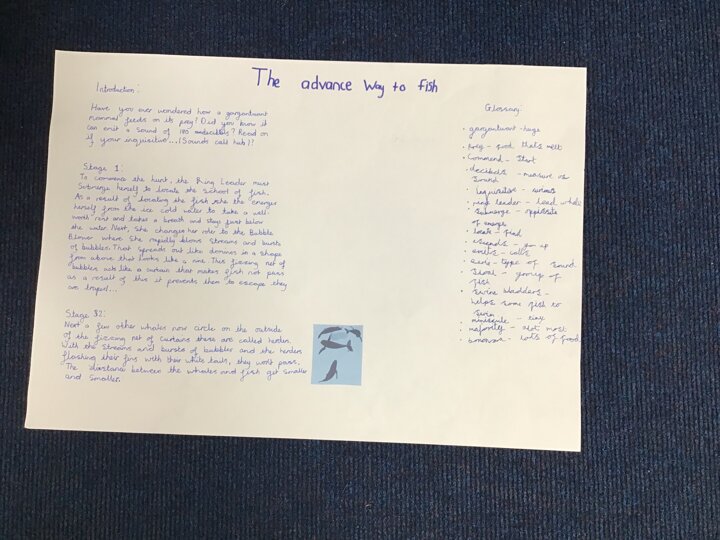 The advance way to fish
Introduction:
Have you ever wondered how a gargantuant
mammal feeds on its prey? Did you know it
can emit a sound of 180 Read on
if your inquisitive...(Sounds call hub)?
Stage 1:
To commence the hunt, the Ring Leader must
Submerge herself to locate the school of fish.
As a result of locating the fish she
herself from the ice cold water to take a well-
worth rest and takes a breath and stays just below
the water. Next, She changes her role to the Bubble
Blower where She rapidly blows Streams and bursts
of bubbles. That spreads out like dominos in a shape
from above that looks like a nine. This fizzing net of
bubbles acts like a curtain that makes fish not pass
as a result of this it prevents them to escape they
are traped...
Stage 2:
Next a few other whales now circle on the outside
of the fizzing net of curtains these are called
With the Streams and bursts of bubbles and the herders
flashing their fins with their white tails, they won't pass.
The distance between the whales and fish get smaller
and smaller.
Glossary:
• gargantuant - huge
• Prey - food thats
• Commence - Start
• decibels - measure of
Sound
• inquisitive - curious
• ring leader - lead whale
• Submerge - opposite
of emerge
• locate - find
• - go up
• - calls
• - type of Sound
• Shoal - group of
fish
• Swim bladders -
helps some fish to
Swim
• miniscule - tiny
• majority - most
• - lots of food